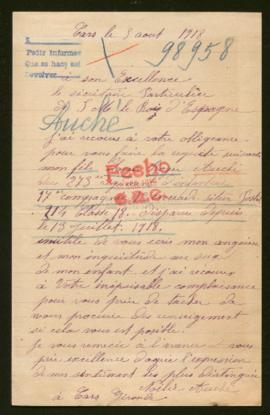 Tars le 3 aout 1918
98958
Pedir informes
Que se han
Devolver
à son Excellence
le Secrétaire Particulière
de S. M. le Roi d'Espagne
Auché
j'ai recours à votre obligeance
pour vous faire la requête suivante
mon fils Auché
273 d'Infanterie
17e compagnie
214 classe 18. Disparu depuis
le 13 juillet 1918.
inutile de vous dire mon angoisse
et mon inquiétude au suj
de mon enfant et j'ai recours
à Votre inépuisable complaisance
pour vous prier de tacher de
nous procurer des renseignement
si cela vous est posible.
je vous remercie à l'avance et vous
prie excellence d'agréer l'expression
de mes sentiments les plus distingués
Auché
à Tars Gironde